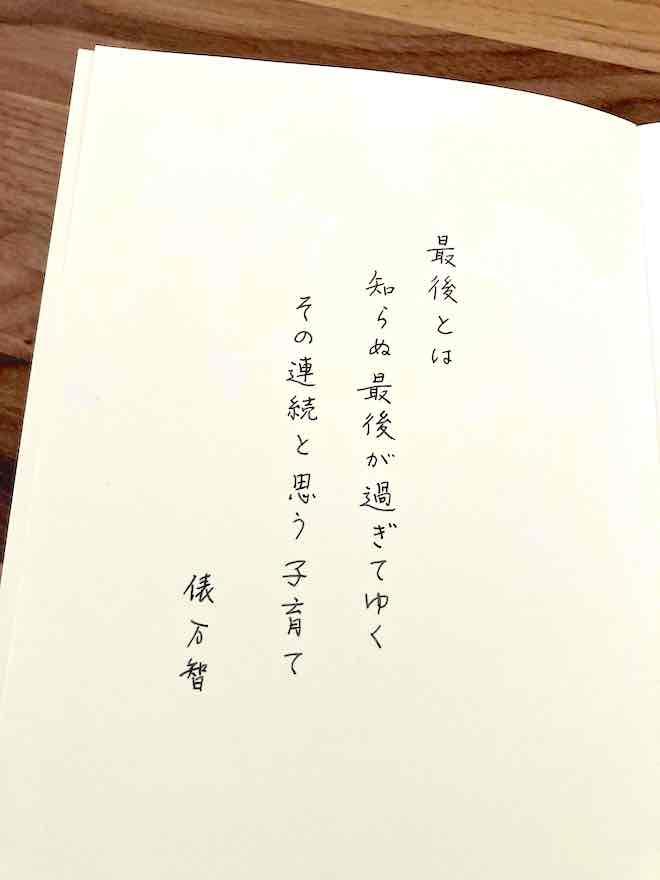 最後とは
知らぬ最後が過ぎてゆく
その連続と思う子育て
俵万智